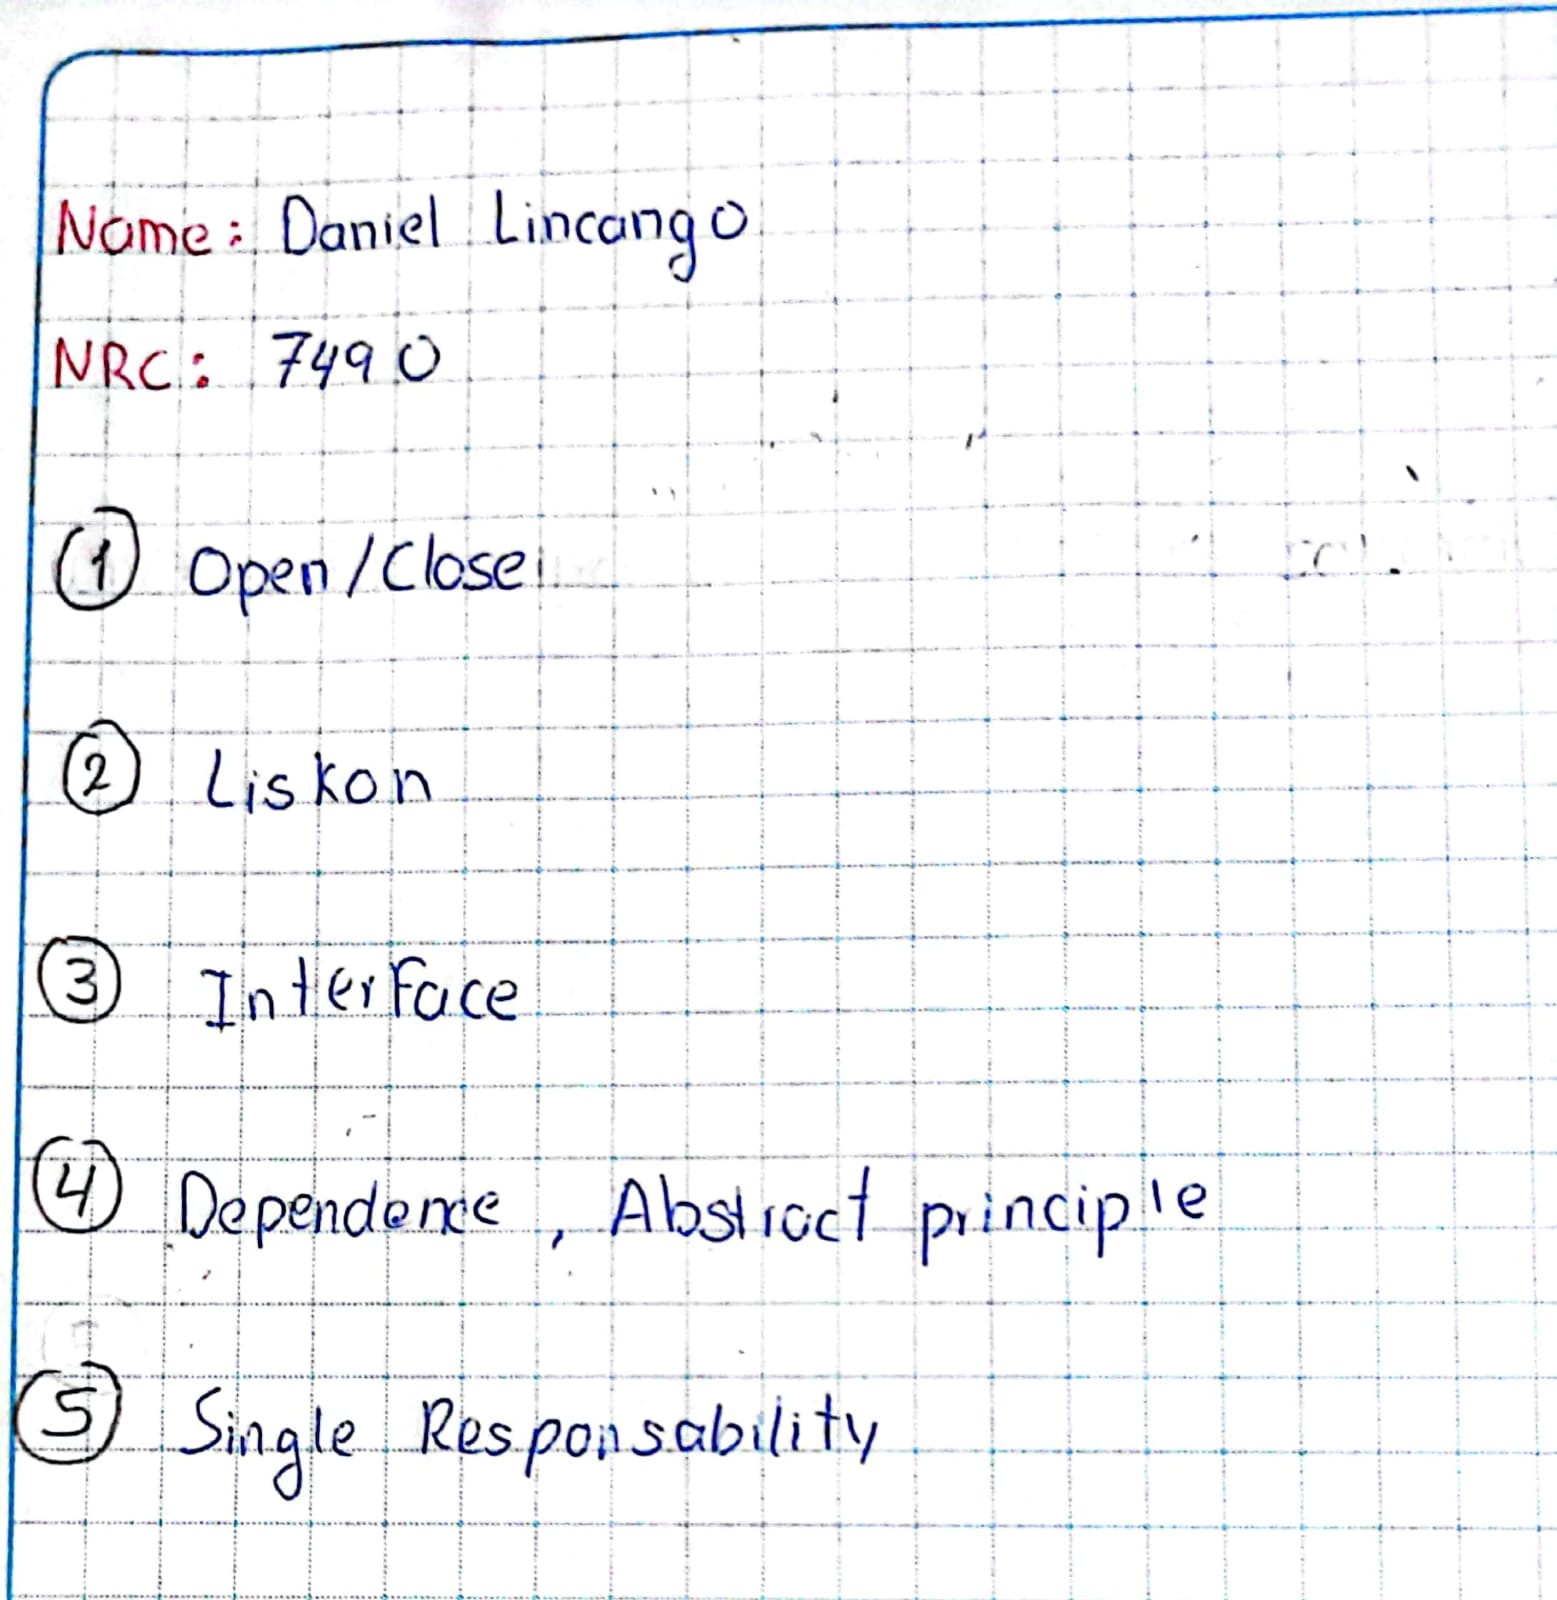 Name: Daniel Lincango
NRC: 7490
1 Open/Close
2 Liskon
3 Interface
4 Dependence, Abstract principle
5 Single Responsability